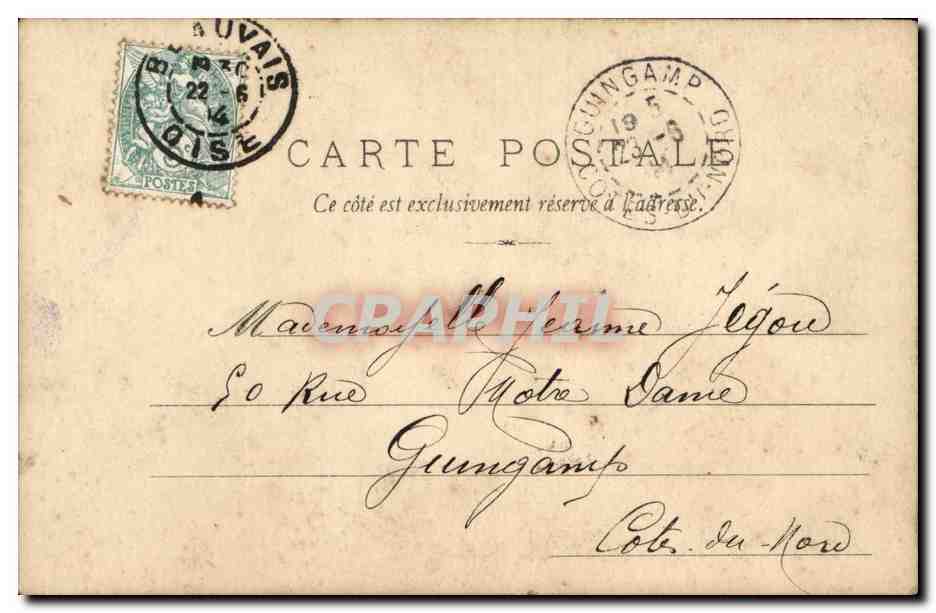 BEAUVAIS
22 - 6
04
OISE
POSTES
GUINGAMP
5
19
23 - 6
CÔTES-DU-NORD
CARTE POSTALE
Ce côté est exclusivement réservé à l'adresse.
CPAPHIL
Mademoiselle Jeanne Jégou
50 Rue Notre Dame
Guingamp
Côtes-du-Nord